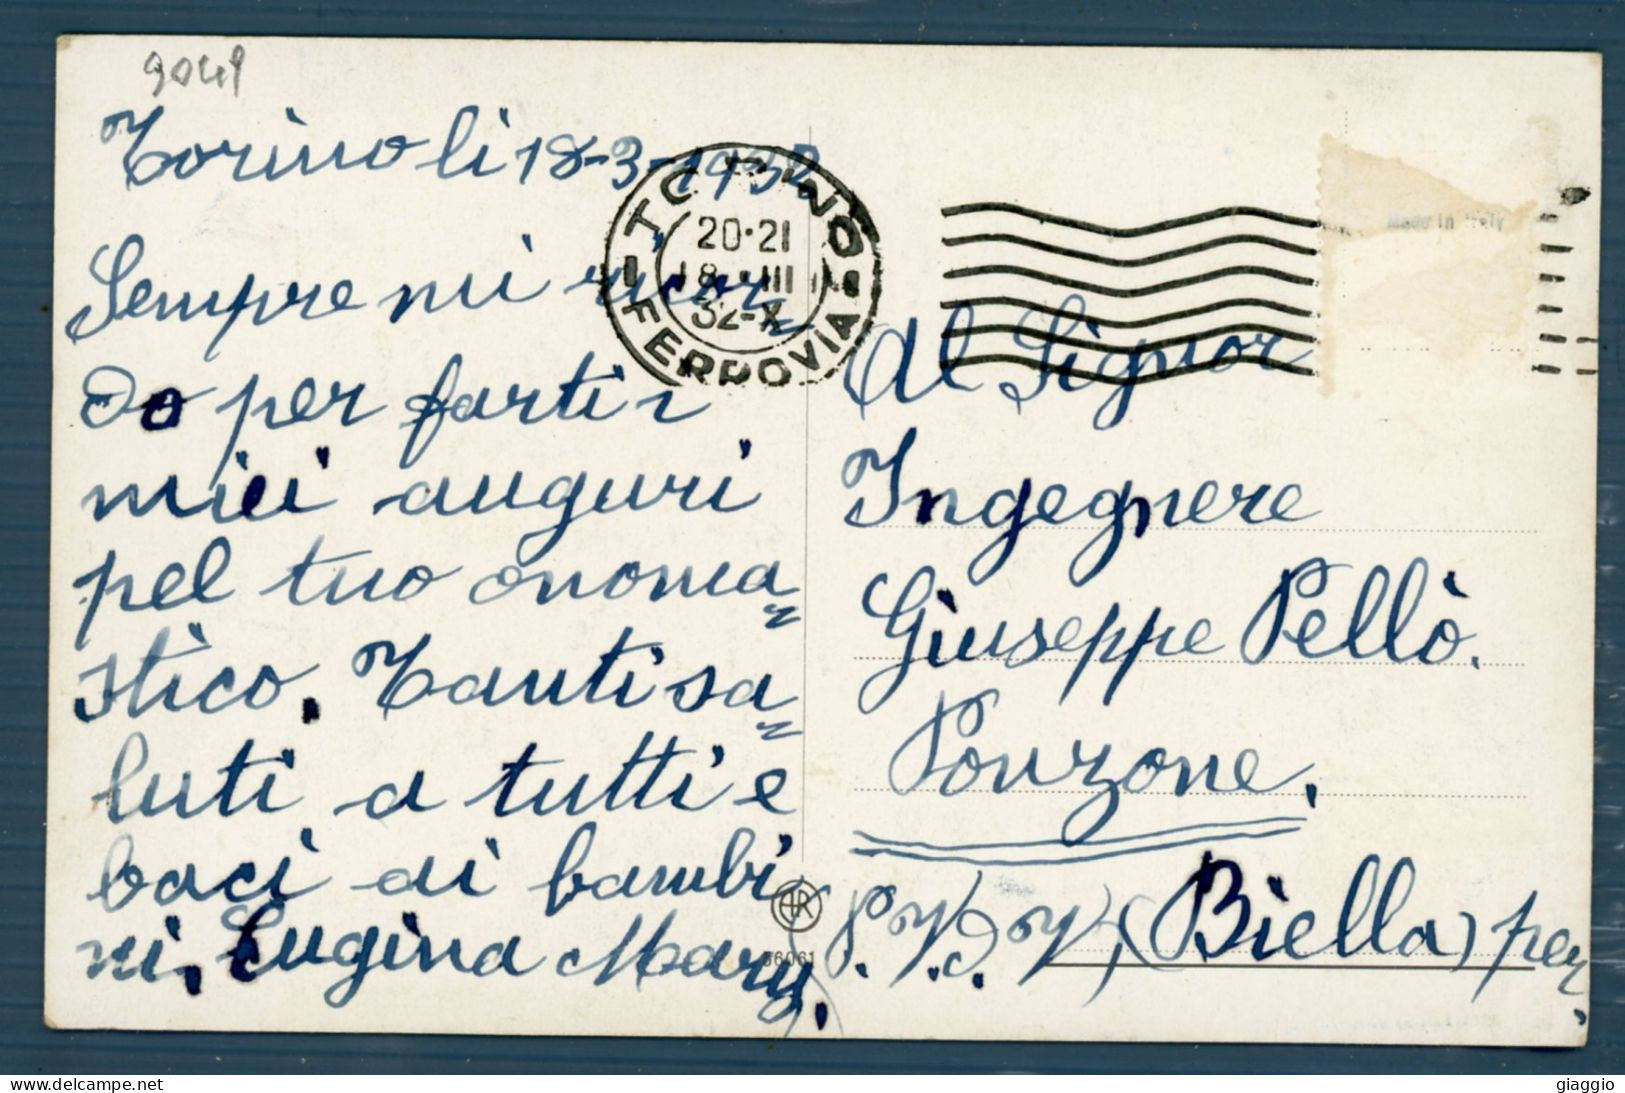 9041
Torino li 18-3-1932
Sempre mi ricor=
do per farti i
miei auguri
pel tuo onoma=
stico. Tanti sa=
luti a tutti e
baci ai bambi
ni. Eugina Mary.
TORINO
20·21
18 III
32-X
FERROVIA
Made in Italy
Al Signor
Ingegnere
Giuseppe Pellò.
Ponzone.
(Biella) per
36061
giaggio